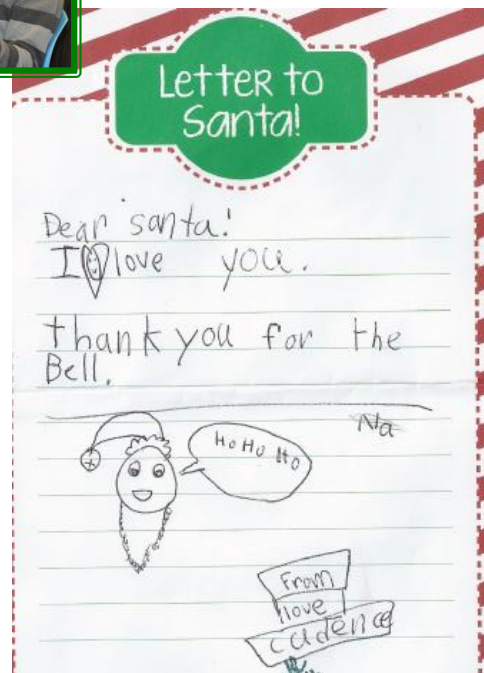 Letter to
Santa!
Dear santa!
I love you.
thank you for the
Bell.
Na
Ho Ho Ho
From
love
cadence